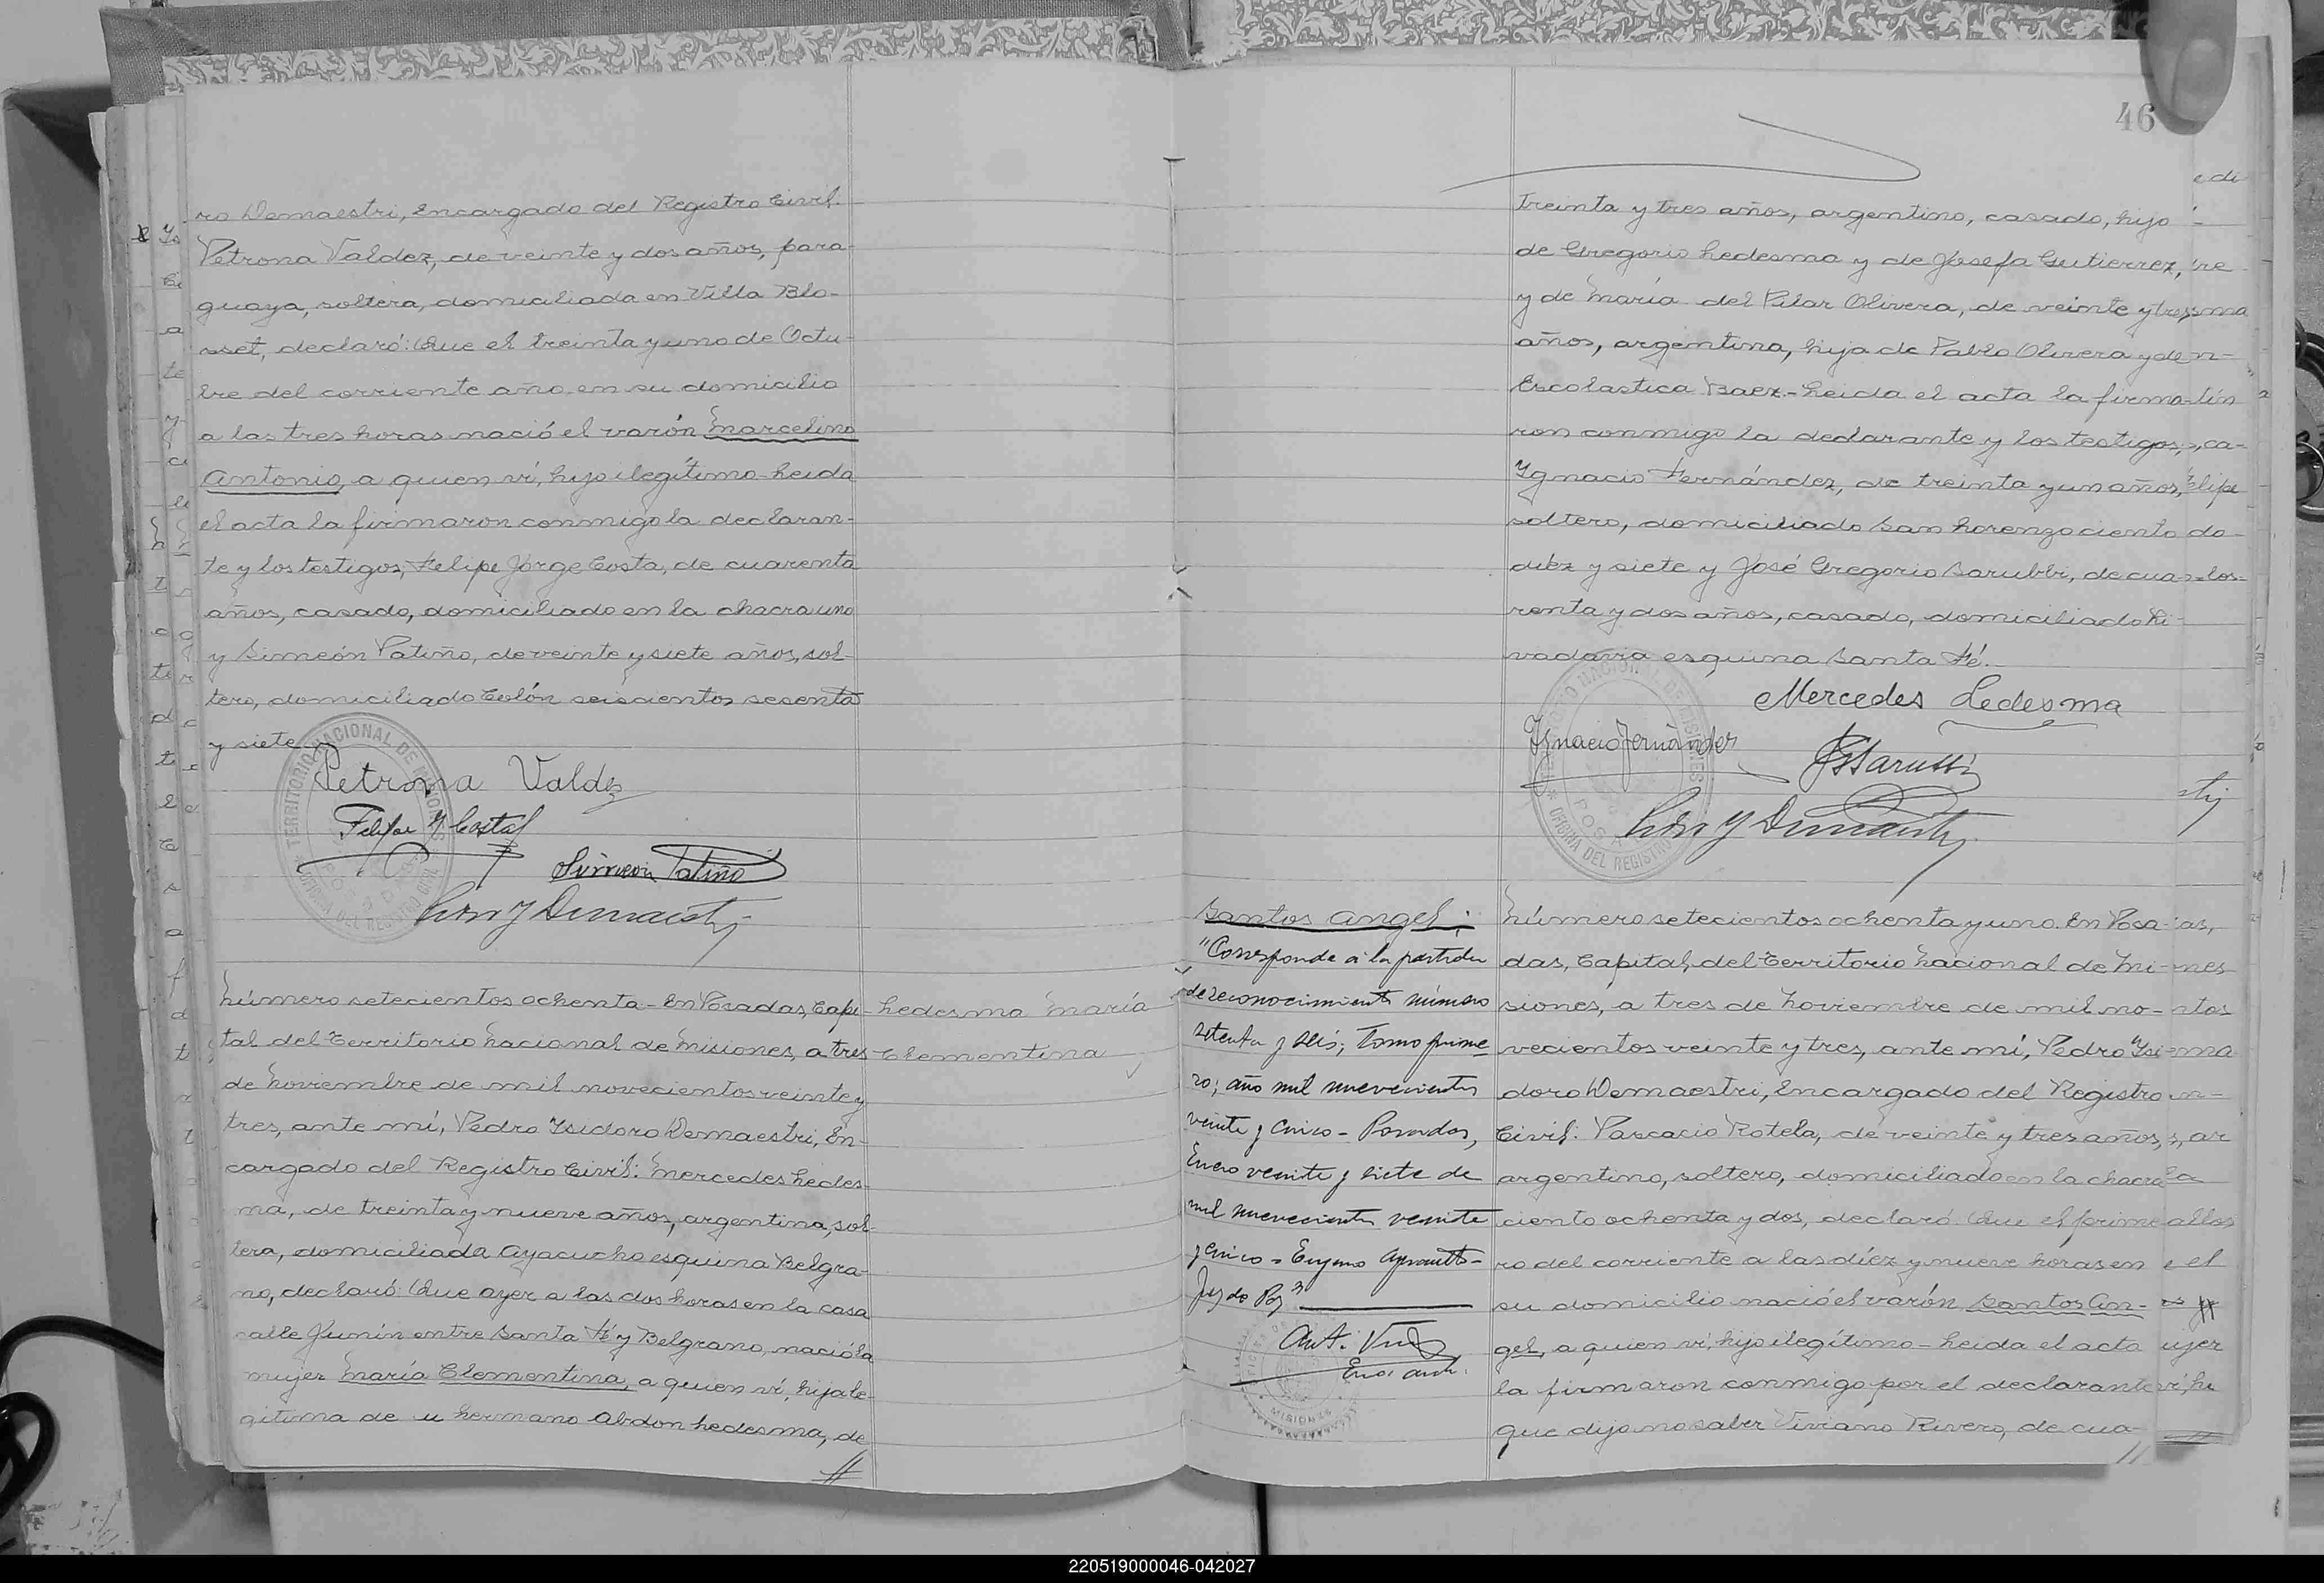 ro Demaestri, Encargado del Registro Civil.
Petrona Valdez, de veinte y dos años, para-
guaya, soltera, domiciliada en Villa Blo-
sset, declaró: Que el treinta y uno de Octu-
bre del corriente año en su domicilio
a las tres horas nació el varón Marcelino
Antonio, a quien ví, hijo ilegítimo-Leida
el acta la firmaron conmigo la declaran-
te y los testigos, Felipe Jorge Costa, de cuarenta
años, casado, domiciliado en la chacra uno
y Simeón Patiño, de veinte y siete años, sol-
tero, domiciliado Colón seiscientos sesenta
y siete
TERRITORIO NACIONAL DE MISIONES
OFICINA DEL REGISTRO CIVIL
Petrona Valdez
Felipe J Costa
Simeon Patiño
Número setecientos ochenta-En Posadas, Capi-
tal del Territorio Nacional de Misiones, a tres
de Noviembre de mil novecientos veinte y
tres, ante mí, Pedro Ysidoro Demaestri, En-
cargado del Registro Civil: Mercedes Ledes-
ma, de treinta y nueve años, argentina, sol-
tera, domiciliada Ayacucho esquina Belgra-
no, declaró: Que ayer a las dos horas en la casa
calle Junín entre Santa Fé y Belgrano, nació la
mujer María Clementina, a quien ví, hija le-
gitima de u hermano Abdon Ledesma, de
Ledesma María
Clementina
46
treinta y tres años, argentino, casado, hijo
de Gregorio Ledesma y de Josefa Gutierrez,
y de María del Pilar Olivera, de veinte y tres
años, argentina, hija de Pablo Olivera y de
Escolastica Baez.-Leida el acta la firma-
ron conmigo la declarante y los testigos,
Ygnacio Fernández, de treinta y un años,
soltero, domiciliado San Lorenzo ciento
diez y siete y José Gregorio Sarubbi, de cua-
renta y dos años, casado, domiciliado Ri-
vadavia esquina Santa Fé.
TERRITORIO NACIONAL DE MISIONES
OFICINA DEL REGISTRO
Mercedes Ledesma
Ignacio Fernández
Santos Angel;
"Corresponde a la partida
de reconocimiento número
setenta y seis; Tomo prime
ro; año mil nuevecientos
veinte y cinco - Posadas,
Enero veinte y siete de
mil nuevecientos veinte
y cinco -
MISIONES
Número setecientos ochenta y uno. En Posa-
das, Capital, del Territorio Nacional de Mi-
siones, a tres de Noviembre de mil no-
vecientos veinte y tres, ante mí, Pedro Ysi-
doro Demaestri, Encargado del Registro
Civil: Pascacio Rotela, de veinte y tres años,
argentino, soltero, domiciliado en la chacra
ciento ochenta y dos, declaró: Que el prime
ro del corriente a las diez y nueve horas en
su domicilio nació el varón Santos An-
gel, a quien ví, hijo ilegítimo-Leida el acta
la firmaron conmigo por el declarante
que dijo no saber Viviano Rivero, de cua-
220519000046-042027